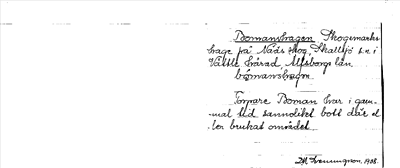 Bomanshagen Skogsmarks
hage på Nääs skog, Skallsjö s:n i
Vättle härad Älfsborgs län.
bòmanshagen
Torpare Boman har i gam-
mal tid sannolikt bott där el-
ler brukat området.
D.M. Svenungsson, 1928.